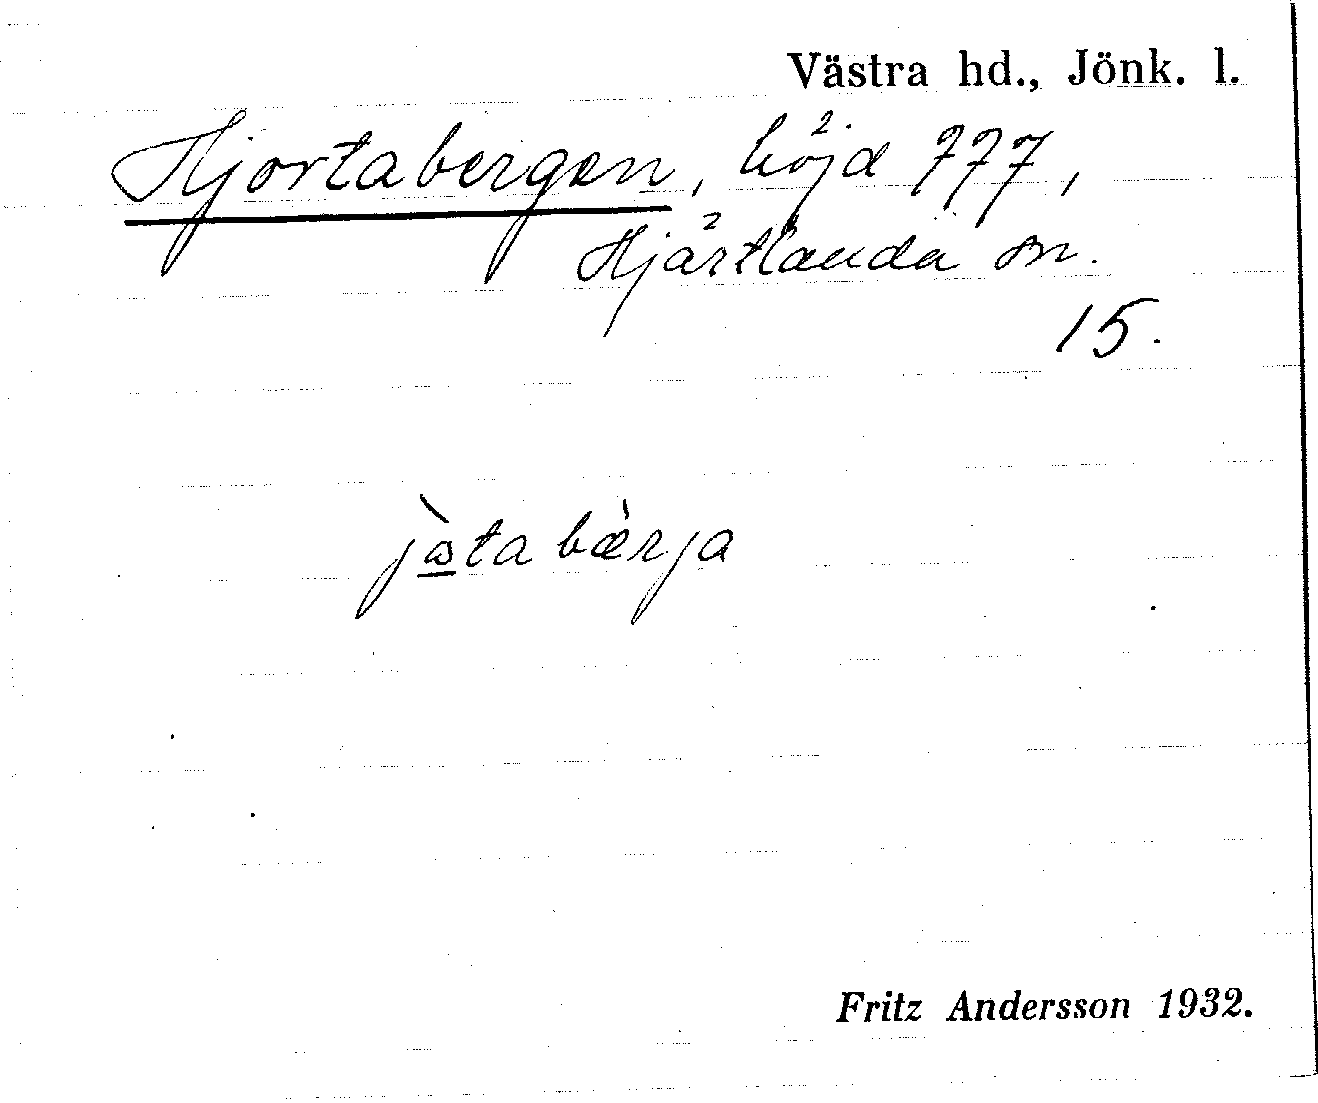 Västra hd., Jönk. l.
Hjortabergen, höjd 777,
Hjärtlanda sn.
15.
jàta bærja
Fritz Andersson 1932.